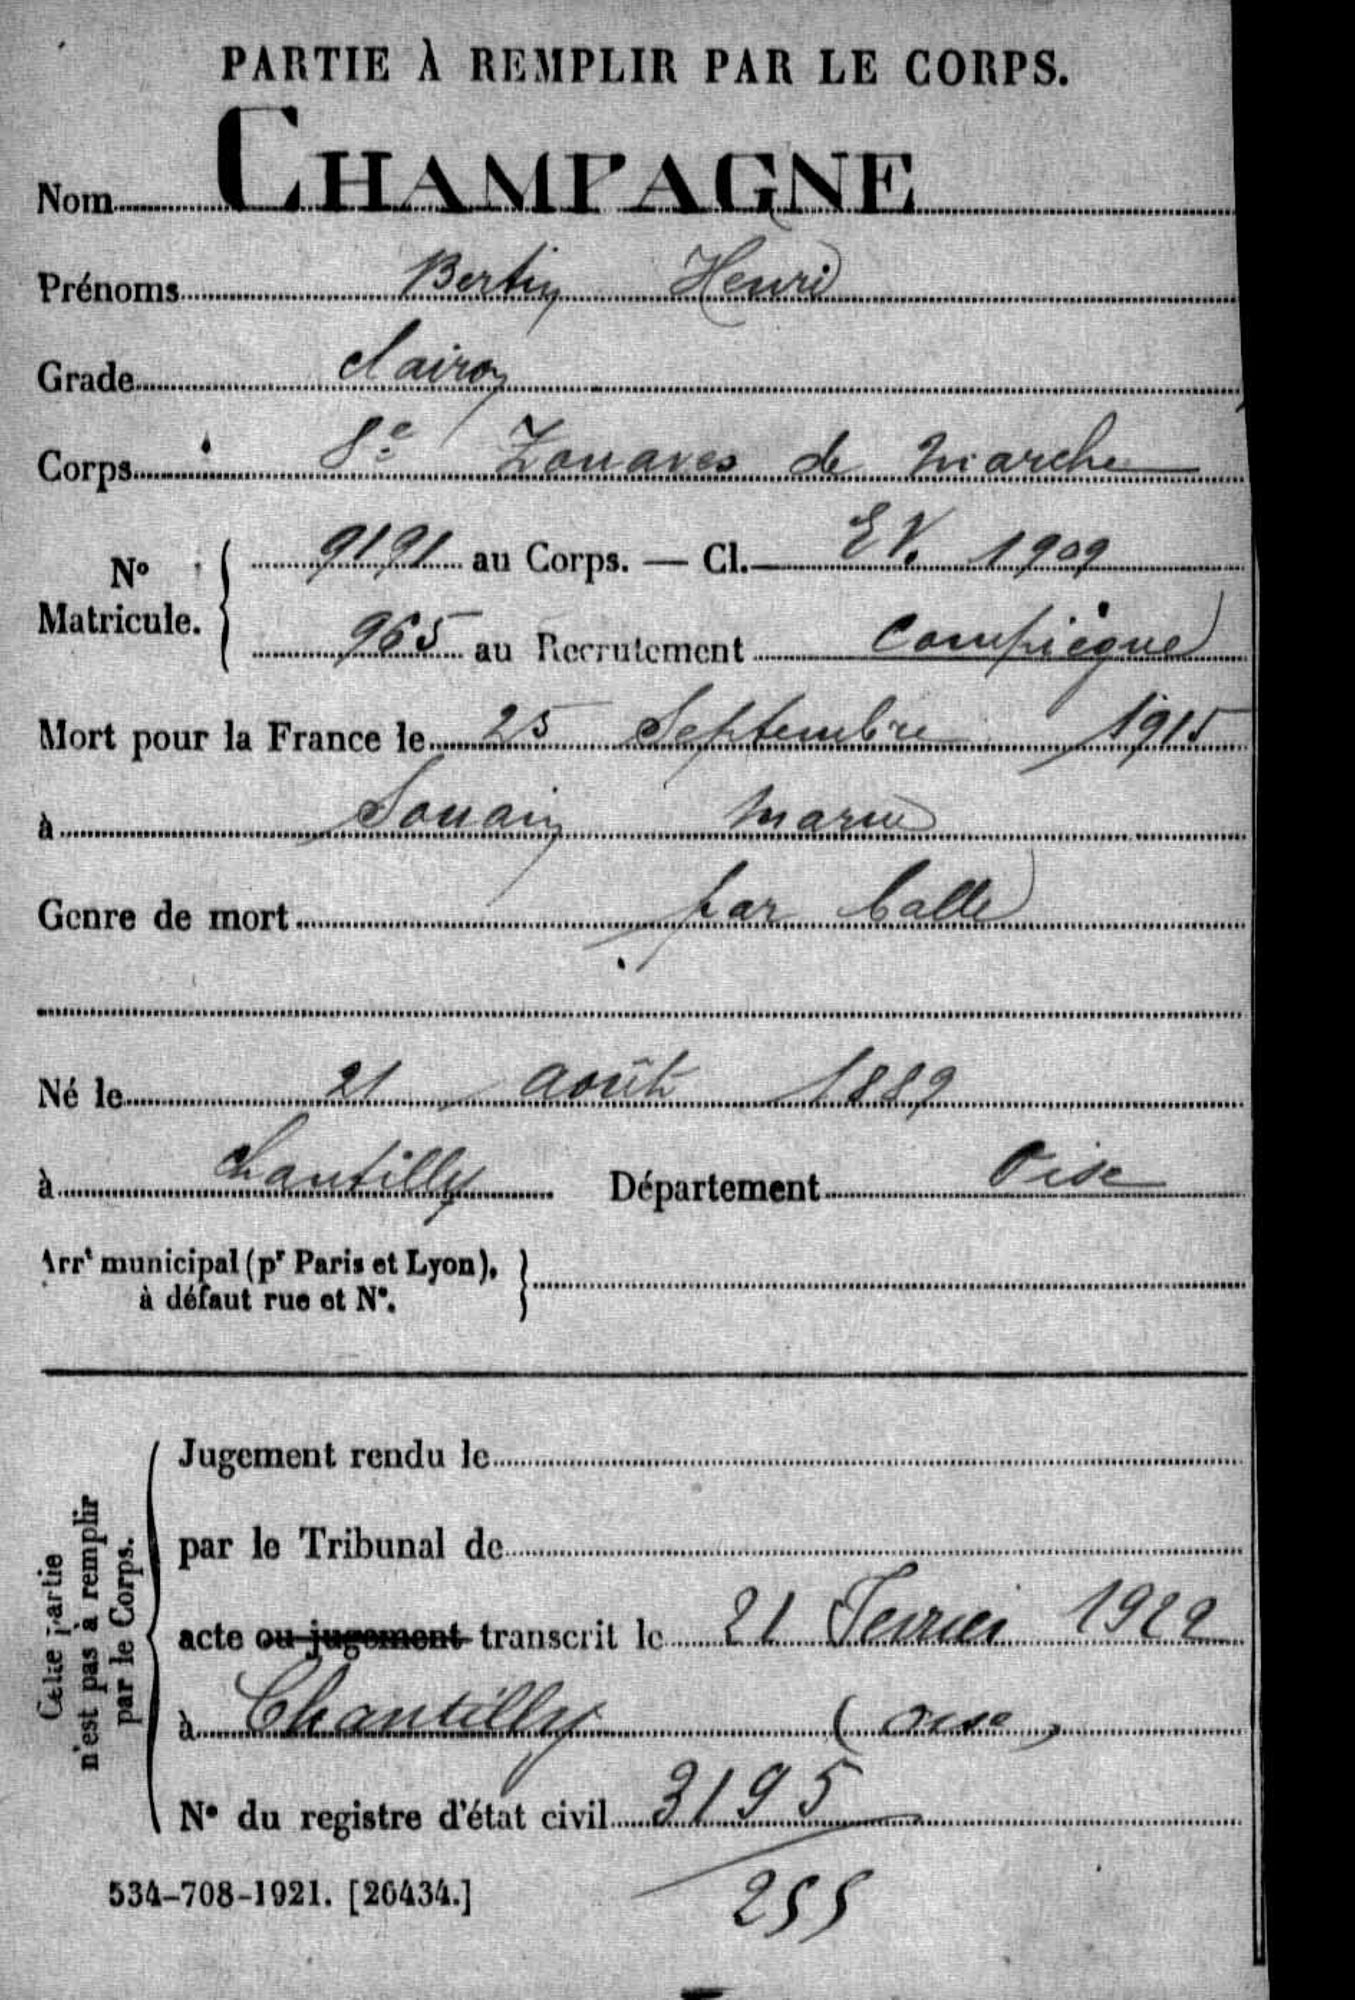 PARTIE À REMPLIR PAR LE CORPS.
Nom CHAMPAGNE
Prénoms Bertin Henri
Grade clairon
Corps 8e Zouaves de marche
No Matricule. 9191 au Corps. — Cl. EV. 1909
965 au Recrutement Compiègne
Mort pour la France le 25 Septembre 1915
à Souain Marne
Genre de mort par balle
Né le 21 août 1889
à Chantilly Département Oise
Arrt municipal (pr Paris et Lyon),
à défaut rue et N°.
Cette partie
n'est pas à remplir
par le Corps.
Jugement rendu le
par le Tribunal de
acte ou jugement transcrit le 21 Fevrier 1922
à Chantilly (oise)
N° du registre d'état civil 3195
255
534-708-1921. [26434.]